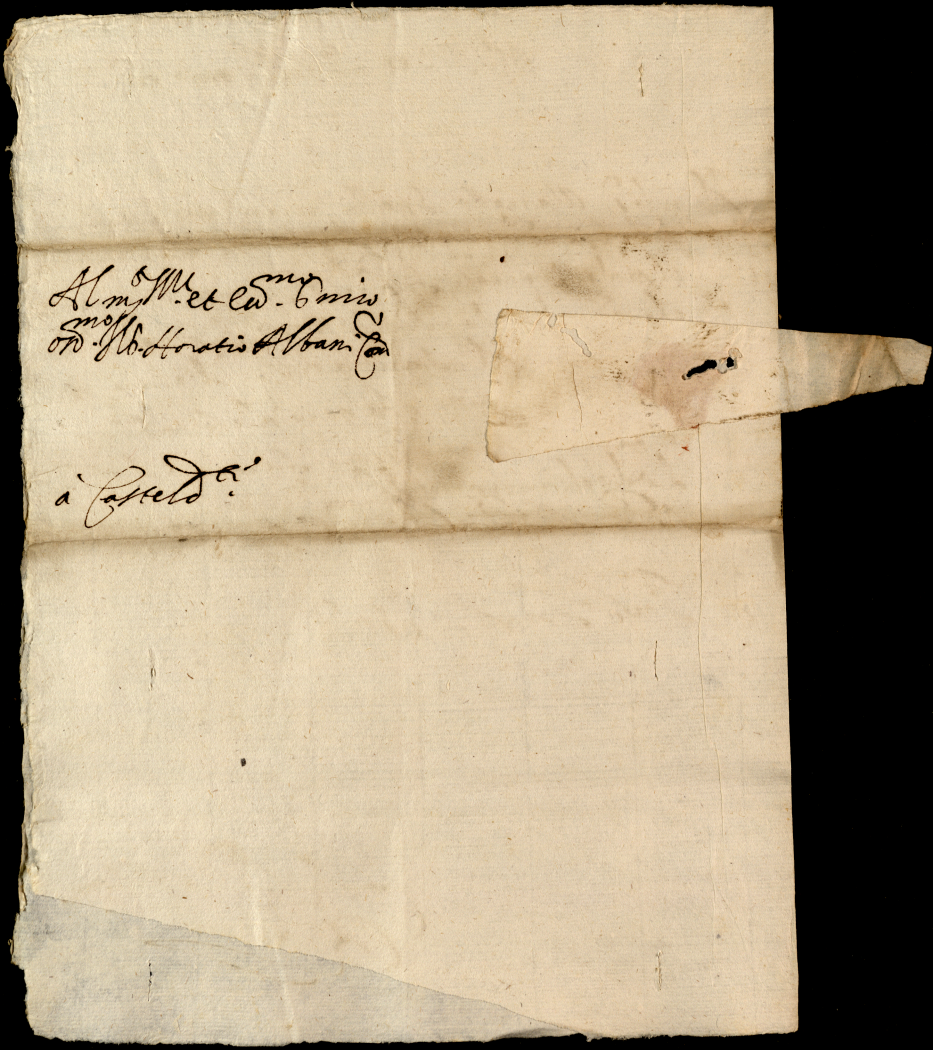 Al m.to Ill.e et Ecc.mo S.r mio
oss.mo Il S.r Horatio Albani
à Casteld.ti